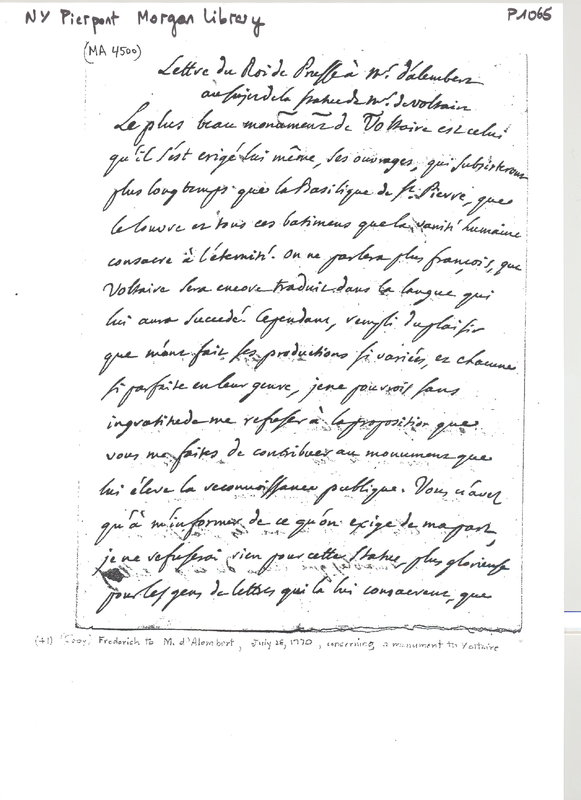 NY Pierpont Morgan Library
P1065
(MA 4500)
Lettre du Roi de Prusse à Mr. d'alembert
au sujet de la statue de Mr. de Voltaire
Le plus beau monument de Voltaire est celui
qu'il s'est erigé lui même, ses ouvrages, qui subsisteront
plus longtemps que la Basilique de St. Pierre, que
le louvre et tous ces batimens que la vanité humaine
consacre à l'éternité. On ne parlera plus françois, que
Voltaire sera encore traduit dans la langue qui
lui aura succedé. Cependant, rempli du plaisir
que m'ont fait ses productions si variées, et chacune
si parfaite en leur genre, je ne pourrois sans
ingratitude me refuser à la proposition que
vous me faites de contribuer au monument que
lui éleve la reconnoissance publique. Vous n'avez
qu'à m'informer de ce qu'on exige de ma part,
je ne refuserai rien pour cette statue, plus glorieuse
pour les gens de lettres qui la lui consacrent, que
(41) Frederich to M. d'Alembert, July 28, 1770, concerning a monument to Voltaire